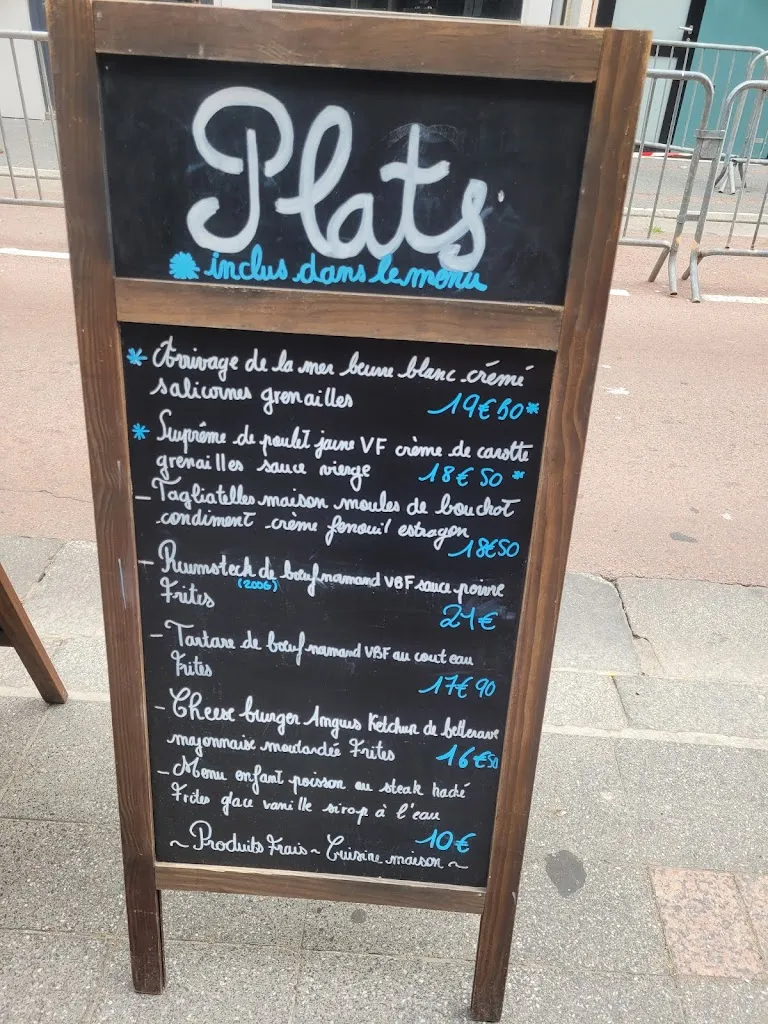 Plats
* inclus dans le menu
* Arrivage de la mer beurre blanc crémé
salicornes grenailles
19€50*
* Suprême de poulet jaune VF crème de carotte
grenailles sauce vierge 18€50 *
- Tagliatelles maison moules de bouchot
condiment crème fenouil estragon
18€50
- Rumsteck de bœuf normand VBF sauce poivre
(200G)
Frites
21€
- Tartare de bœuf normand VBF au couteau
Frites
17€90
- Cheese burger Angus Ketchup de betterave
mayonnaise moutardée Frites 16€50
- Menu enfant poisson ou steak haché
Frites glace vanille sirop à l'eau
10€
~ Produits Frais ~ Cuisine maison ~